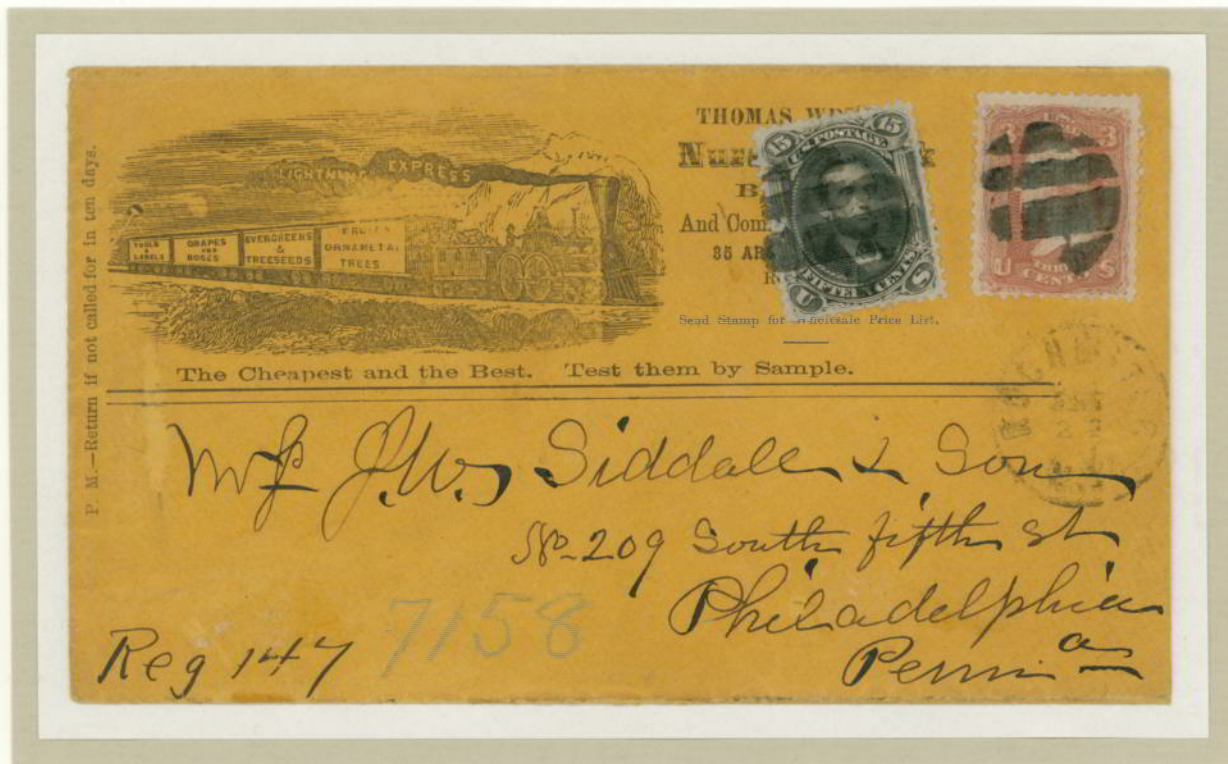 P. M.—Return if not called for in ten days.
LIGHTNING EXPRESS
TOOLS
LABELS
GRAPES
AND
ROSES
EVERGREENS
&
TREESEEDS
ORNAMETAL
TREES
THOMAS
And Com
Send Stamp for Wholesale Price List.
The Cheapest and the Best. Test them by Sample.
15 U.S. POSTAGE. 15
U FIFTEEN CENTS S
3 3
U CENTS S
J. W. Siddale & Son
No. 209 South fifth St
Philadelphia
Penna
Reg 147
7158